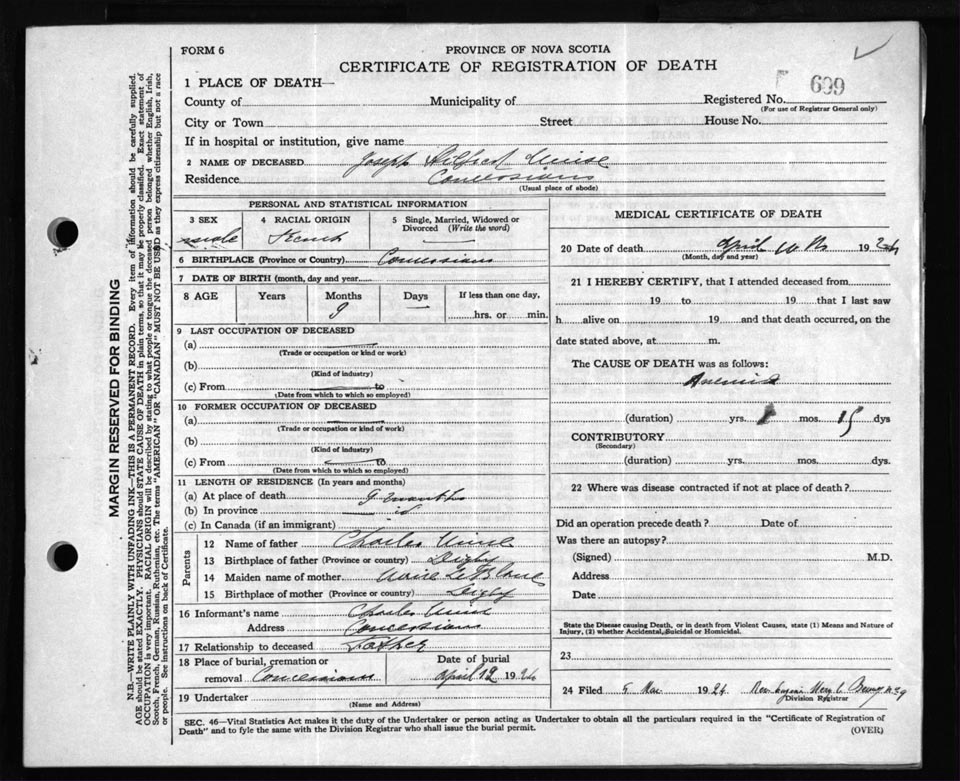 FORM 6
PROVINCE OF NOVA SCOTIA
CERTIFICATE OF REGISTRATION OF DEATH
1 PLACE OF DEATH—
699
County of Municipality of Registered No.
(For use of Registrar General only)
City or Town Street House No.
If in hospital or institution, give name
2 NAME OF DECEASED Joseph Wilfred
Residence Concessions
(Usual place of abode)
PERSONAL AND STATISTICAL INFORMATION
3 SEX 4 RACIAL ORIGIN 5 Single, Married, Widowed or
Divorced (Write the word)
male French —
6 BIRTHPLACE (Province or Country) Concessions
7 DATE OF BIRTH (month, day and year
8 AGE Years Months Days If less than one day,
9 — hrs. or min.
9 LAST OCCUPATION OF DECEASED
(a)
(Trade or occupation or kind or work)
(b)
(Kind of industry)
(c) From to
(Date from which to which so employed)
10 FORMER OCCUPATION OF DECEASED
(a)
(Trade or occupation or kind of work)
(b)
(Kind of industry)
(c) From to
(Date from which to which so employed)
11 LENGTH OF RESIDENCE (In years and months)
(a) At place of death 9 months
(b) In province
(c) In Canada (if an immigrant)
Parents
12 Name of father Charles
13 Birthplace of father (Province or country) Digby
14 Maiden name of mother Marie LeBlanc
15 Birthplace of mother (Province or country) Digby
16 Informant's name Charles
Address Concessions
17 Relationship to deceased Father
18 Place of burial, cremation or Date of burial
removal Concessions April 12 1924
19 Undertaker
(Name and Address)
MEDICAL CERTIFICATE OF DEATH
20 Date of death April 10th 1924
(Month, day and year)
21 I HEREBY CERTIFY, that I attended deceased from
19 to 19 that I last saw
h alive on 19 and that death occurred, on the
date stated above, at m.
The CAUSE OF DEATH was as follows:
Anemia
(duration) yrs. mos. 15 dys
CONTRIBUTORY
(Secondary)
(duration) yrs. mos. dys.
22 Where was disease contracted if not at place of death?
Did an operation precede death? Date of
Was there an autopsy?
(Signed) M.D.
Address
Date
State the Disease causing Death, or in death from Violent Causes, state (1) Means and Nature of
Injury, (2) whether Accidental, Suicidal or Homicidal.
23
24 Filed 5 1924
Division Registrar
SEC. 46—Vital Statistics Act makes it the duty of the Undertaker or person acting as Undertaker to obtain all the particulars required in the "Certificate of Registration of
Death" and to fyle the same with the Division Registrar who shall issue the burial permit.
(OVER)
MARGIN RESERVED FOR BINDING
N.B.—WRITE PLAINLY WITH UNFADING INK—THIS IS A PERMANENT RECORD. Every item of information should be carefully supplied.
AGE should be stated EXACTLY. PHYSICIANS should STATE CAUSE OF DEATH in plain terms, so that it may be properly classified. Exact statement of
OCCUPATION is very important. RACIAL ORIGIN will be described by stating to what people or tongue the deceased person belonged whether English, Irish,
Scotch, French, German, Russian, Ruthenian, etc. The terms "AMERICAN" OR "CANADIAN" MUST NOT BE USED as they express citizenship but not a race
or people. See instructions on back of Certificate.